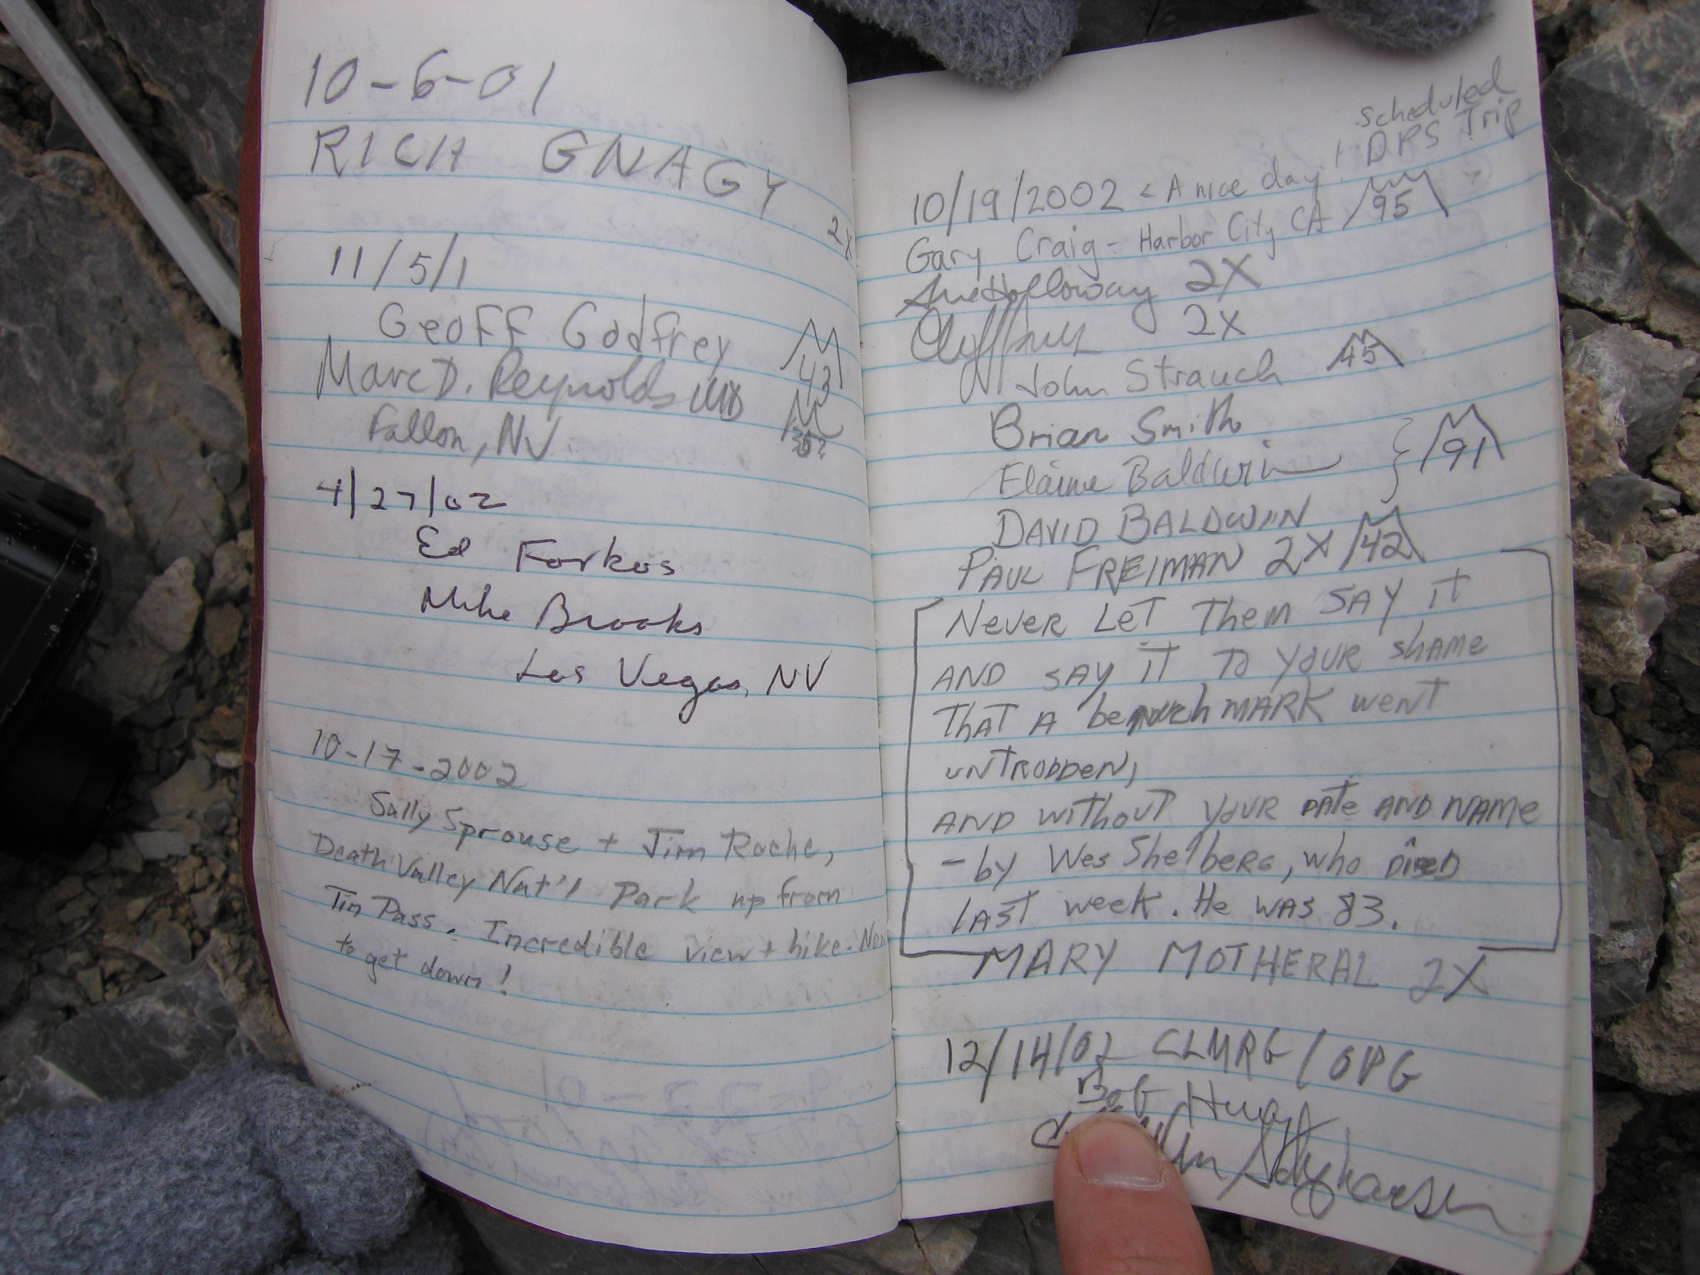 10-6-01
RICH GNAGY
2X
11/5/1
Geoff Godfrey 43
Marc D. Reynolds
Fallon, NV
4/27/02
Ed Forkos
Mike Brooks
Las Vegas, NV
10-17-2002
Sally Sprouse + Jim Roche,
Death Valley Nat'l Park up from
Tin Pass. Incredible view + hike. Now
to get down!
scheduled
DPS Trip
10/19/2002 - A nice day!
Gary Craig - Harbor City CA 95
Sue Holloway 2X
2X
John Strauch 45
Brian Smith
Elaine Baldwin } 91
DAVID BALDWIN
PAUL FREIMAN 2X 42
Never Let Them SAY iT
AND SAY iT TO YOUR shAme
ThAT A benchMARK wenT
unTRODDEN,
AND wiThouT YOUR DATe AND NAMe
- by Wes Shelberg, who DieD
LAST week. He was 83.
MARY MOTHERAL 2X
12/14/02 CLMRG / OPG
Bob